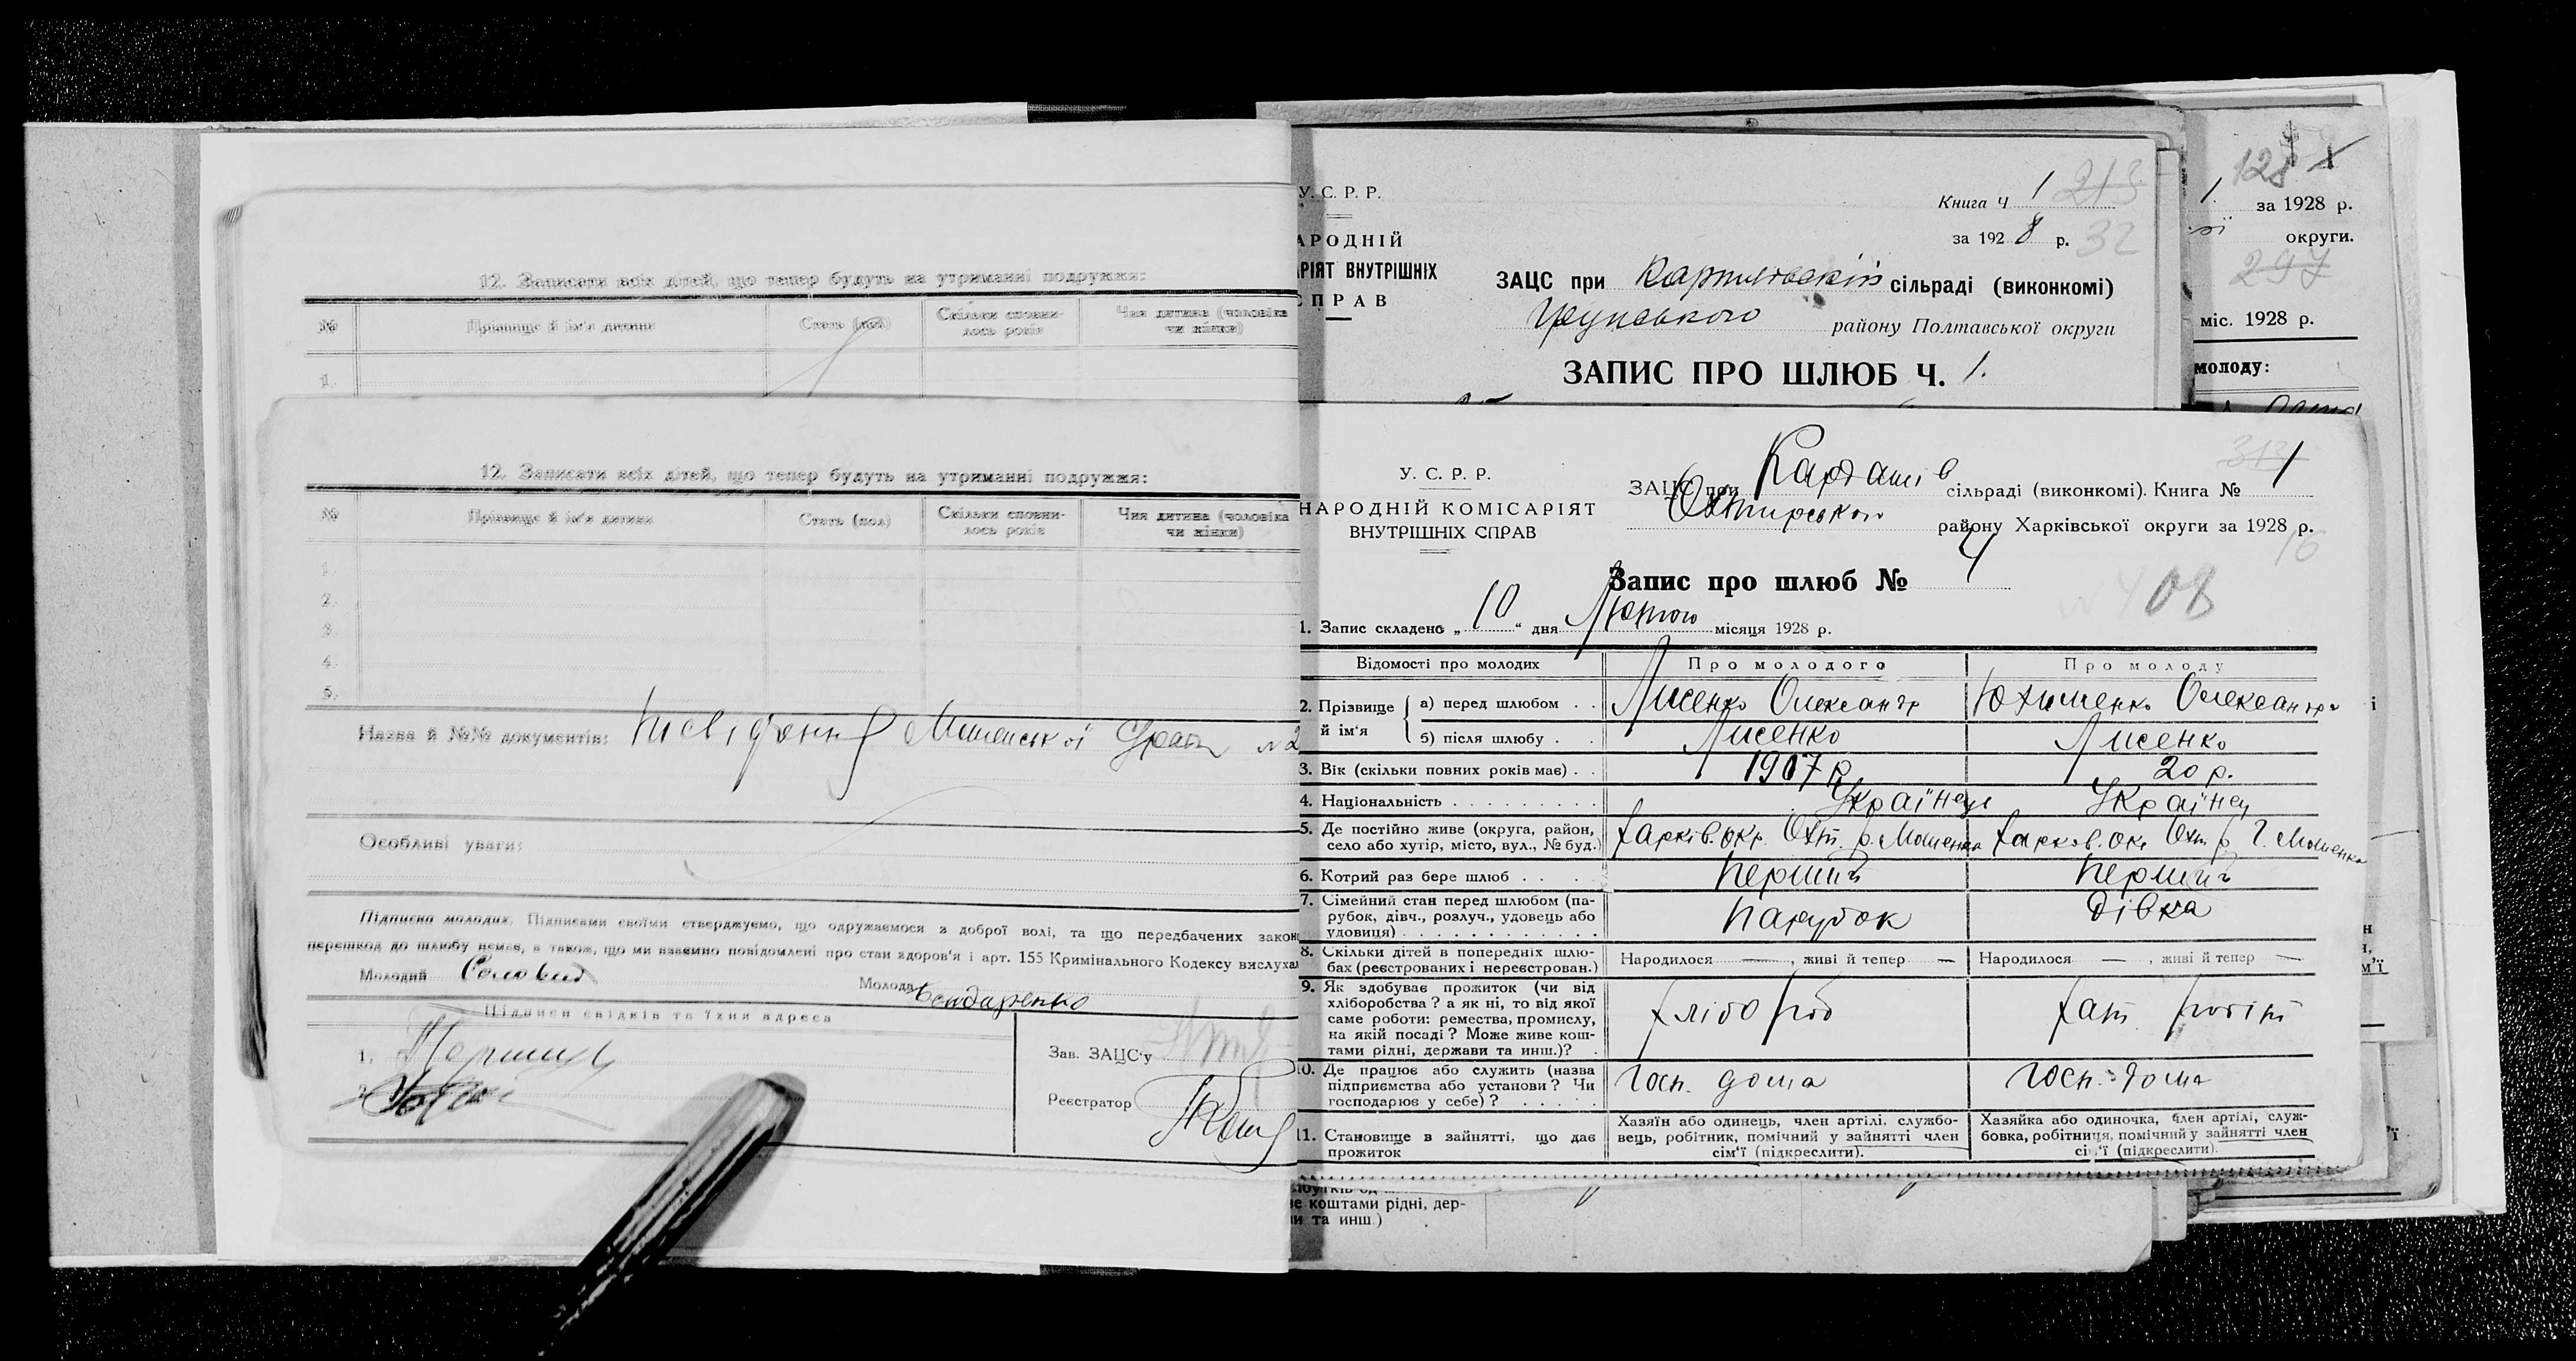 12. Записати всіх дітей, що тепер будуть на утриманні подружжя:
№ Прізвище й ім'я дитини Стать (пол) Скільки сповнилось років Чия дитина (чоловіка чи жінки)
1.
12. Записати всіх дітей, що тепер будуть на утриманні подружжя:
№ Прізвище й ім'я дитини Стать (пол) Скільки сповнилось років Чия дитина (чоловіка чи жінки)
1.
2.
3.
4.
5.
Назва й №№ документів: №2
Особливі уваги:
Підписка молодих. Підписами своїми стверджуємо, що одружаємося з доброї волі, та що передбачених закон
перешкод до шлюбу немає, а також, що ми взаємно повідомлені про стан здоров'я і арт. 155 Кримінального Кодексу вислуха
Молодий Молода Бондаренко
Підписи свідків та їхня адреса
1.
2.
Зав. ЗАЦС'у
Реєстратор
У. С. Р. Р.
АРОДНІЙ
РІЯТ ВНУТРІШНІХ
СПРАВ
Книга Ч 1 213
за 1928 р. 32
ЗАЦС при сільраді (виконкомі)
Грунського району Полтавської округи
ЗАПИС ПРО ШЛЮБ Ч. 1.
128
1. за 1928 р.
округи.
297
міс. 1928 р.
молоду:
У. С. Р. Р.
НАРОДНІЙ КОМІСАРІЯТ
ВНУТРІШНІХ СПРАВ
313
ЗАЦС при Кардашів сільраді (виконкомі). Книга № 1
Охтирського району Харківської округи за 1928 р.
16
Запис про шлюб № 4
08
1. Запис складено „10“ дня Лютого місяця 1928 р.
Відомості про молодих Про молодого Про молоду
2. Прізвище й ім'я а) перед шлюбом . . Лисенко Олександр Юхименко Олександра
б) після шлюбу . . Лисенко Лисенко
3. Вік (скільки повних років має) . . 1907 р. 20 р.
4. Національність . . . . . . . . . Українець Українец
5. Де постійно живе (округа, район,
село або хутір, місто, вул., № буд.) Харків. окр. Охт. р. Мошенка Харков. ок. Охт р. Мошенка
6. Котрий раз бере шлюб . . . . Перший Перший
7. Сімейний стан перед шлюбом (па-
рубок, дівч., розлуч., удовець або
удовиця) . . . . . . . . . . . . Парубок Дівка
8. Скільки дітей в попередніх шлю-
бах (реєстрованих і нереєстрован.) Народилося — , живі й тепер — Народилося — , живі й тепер —
9. Як здобуває прожиток (чи від
хліборобства? а як ні, то від якої
саме роботи: ремества, промислу,
на якій посаді? Може живе кош-
тами рідні, держави та инш.)? Хлібороб Хат. робіт
10. Де працює або служить (назва
підприємства або установи? Чи
господарює у себе)? . . . . . Госп. дома Госп. дома
11. Становище в зайнятті, що дає
прожиток
Хазяїн або одинець, член артілі, службо-
вець, робітник, помічний у зайнятті член
сім'ї (підкреслити).
Хазяйка або одиночка, член артілі, служ-
бовка, робітниця, помічний у зайнятті член
сім'ї (підкреслити).
коштами рідні, дер-
та инш.)